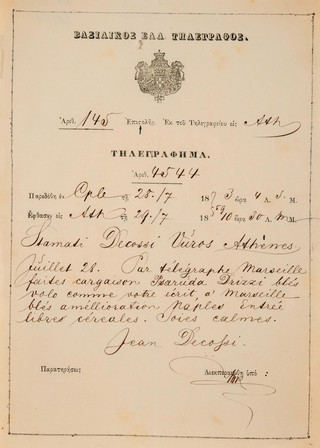 ΒΑΣΙΛΙΚΟΣ ΕΛΛ. ΤΗΛΕΓΡΑΦΟΣ.
Ἀριθ. 145 Ἐπιστολὴ. Ἐκ τοῦ Τηλεγραφείου εἰς Ath
ΤΗΛΕΓΡΑΦΗΜΑ.
Ἀριθ. 4544
Παρεδόθη ἐν Cple τῇ 28/7 18 3 ὥρα 4 Λ. S. M.
Ἔφθασεν εἰς Ath τῇ 29/7 1859 10 ὥρα 30 Λ. M M.
Stamati Decossi Vúros Athènes
juillet 28. Par télégraphe Marseille
faites cargaison blés
volo comme votre écrit, a' Marseille
blés amélioration Naples Entrée
libres céréales. Soies calmes.
Jean Decossi.
Παρατηρήσεις Διεκπεραιώθη ὑπό :